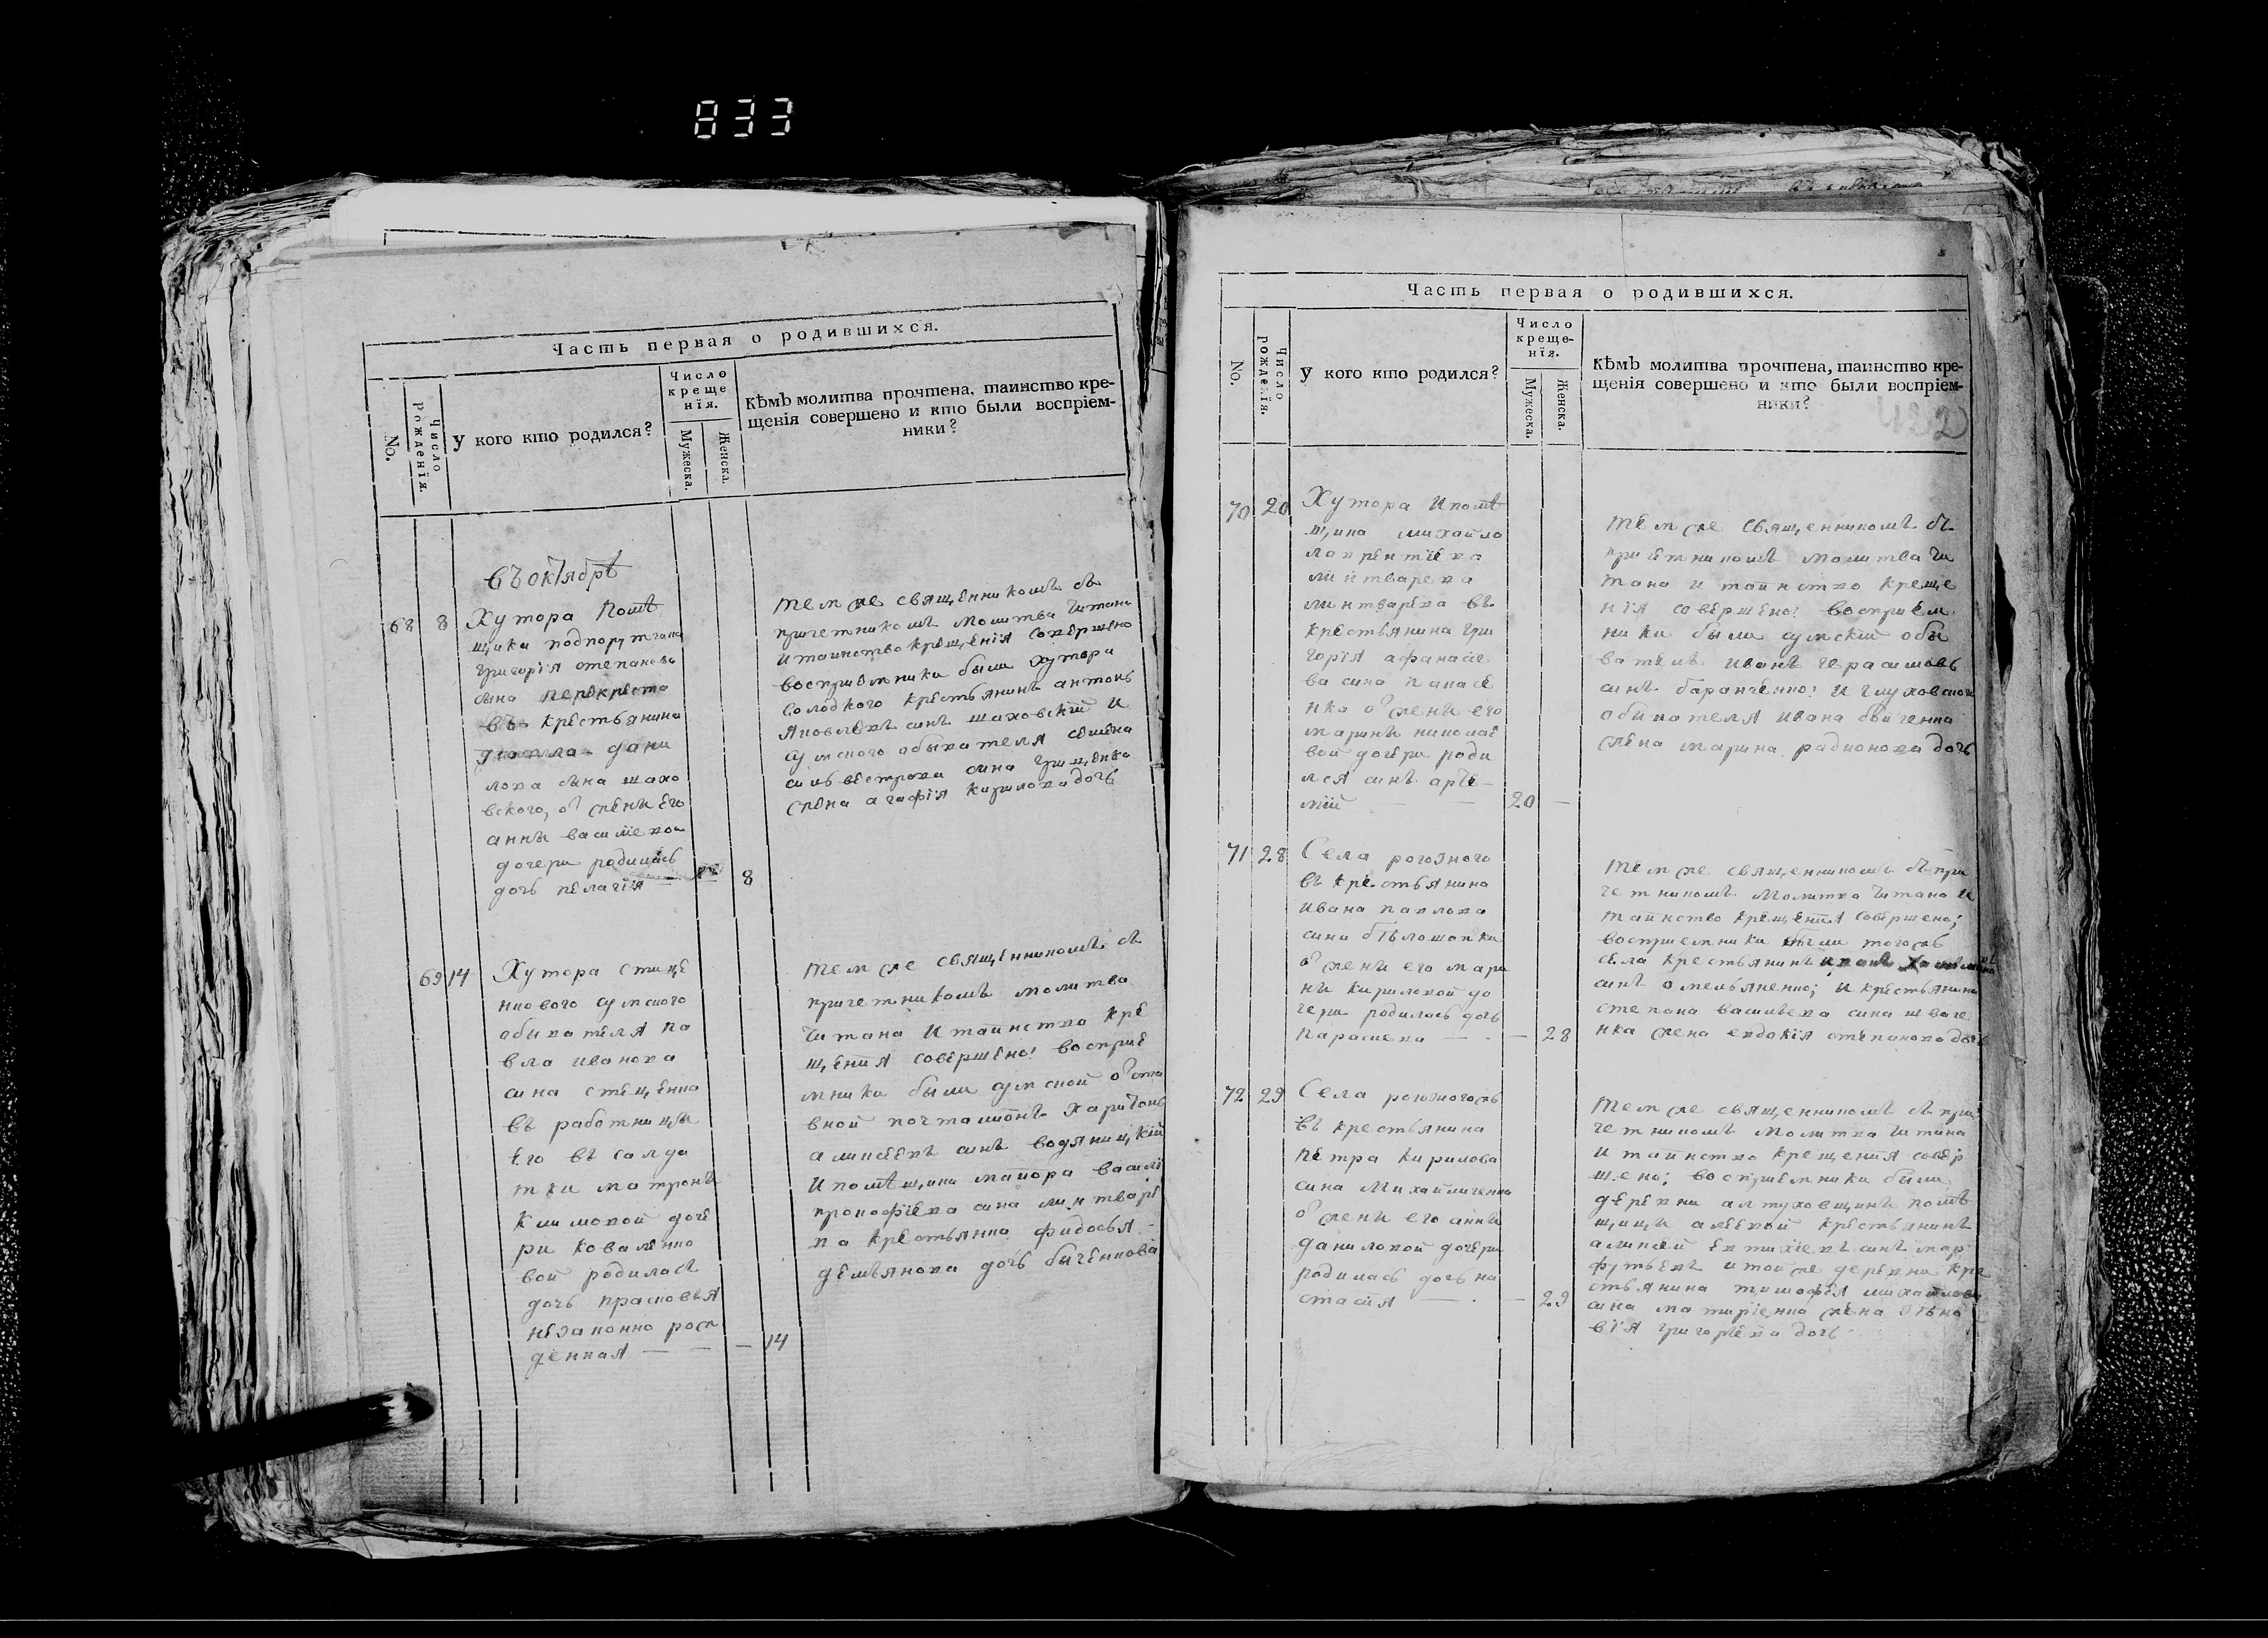 833
Часть первая о родившихся.
No.
Число рожденїя.
У кого кто родился?
Число креще нїя.
Мужеска.
Женска.
Кѣмъ молитва прочтена, таинство кре-
щенїя совершено и кто были воспрїем-
ники?
въ октябрѣ
68 8 Хутора помѣ
щика подпорутчика
григорїя степанова
сына перекреста
въ крестьянина
дани
лова сына шахо
вского, от жены его
анны василево
дочери родилась
дочь пелагїя — 8
тем же священникомъ съ
причетникомъ молитва читана
и таинство крещенїя совершено
восприемники были хутора
солодкого крестьянинъ антонъ
яковлевъ синъ шаховскїй и
сумского обывателя семена
силвестрова сина грищенка
жена агафїя кирилова дочь
69 14 Хутора стеце
нкового сумского
обивателя па
вла иванова
сина стеценка
въ работницы
его въ салда
тки матрони
климовой доче
ри коваленко
вой родилась
дочь прасковья
незаконно рож
денная — — — 14
тем же священникомъ съ
причетникомъ молитва
читана и таинство кре
щенїя совершено! восприе
мники были сумской отста
вной почталїонъ харитонъ
аликсеевъ синъ водяницкїй
и помѣщика маиора василї
прокофїева сина линтваре
ва крестьянка фидосья
демьянова дочь быченкова
Часть первая о родившихся.
No.
Число рожденїя.
У кого кто родился?
Число креще- нїя.
Мужеска.
Женска.
Кѣмъ молитва прочтена, таинство кре-
щенїя совершено и кто были воспрїем-
ники?
70 20 Хутора и помѣ
щика михайло
лаврентїева
линтварева
линтварева въ
крестьянина гри
горїя афанасїе
ва сина панасе
нка от жены его
марины николае
вой дочери роди
лся синъ арте-
мїй — — 20 —
тем же священникомъ съ
причетникомъ молитва чи
тана и таинство креще
нїя совершено! восприем
ники были сумскїй обы
ватель иванъ герасимовъ
синъ баранченко! и глуховской
обивателя ивана быченка
жена марина радионова дочь
71 28 Села рогозного
въ крестьянина
ивана павлова
сина бѣлошапки
от жены его мари
ны кириловой до
чери родилась дочь
параскева — - — 28
тем же священникомъ съ при
четникомъ молитва читана и
таинство крещенїя совершено;
восприемники были тогожъ
села крестьянинъ
синъ омельяненко; и крестьянина
степана василева сина шваче
нка жена евдокїя степанова дочь
72 29 Села рогозногожъ
въ крестьянина
петра кирилова
сина михайличенка
от жены его анны
даниловой дочери
родилась дочь на
стасїя — - — 29
тем же священникомъ съ при
четникомъ молитва читана
и таинство крещенїя совер
шено; восприемники были
деревни алтуховщины помѣ
щицы алеевой крестьянинъ
аликсей евтихїевъ синъ мар
футьевъ и той же деревни кре
стьянина тимофея михайлова
сина жена
вїя григорїева дочь